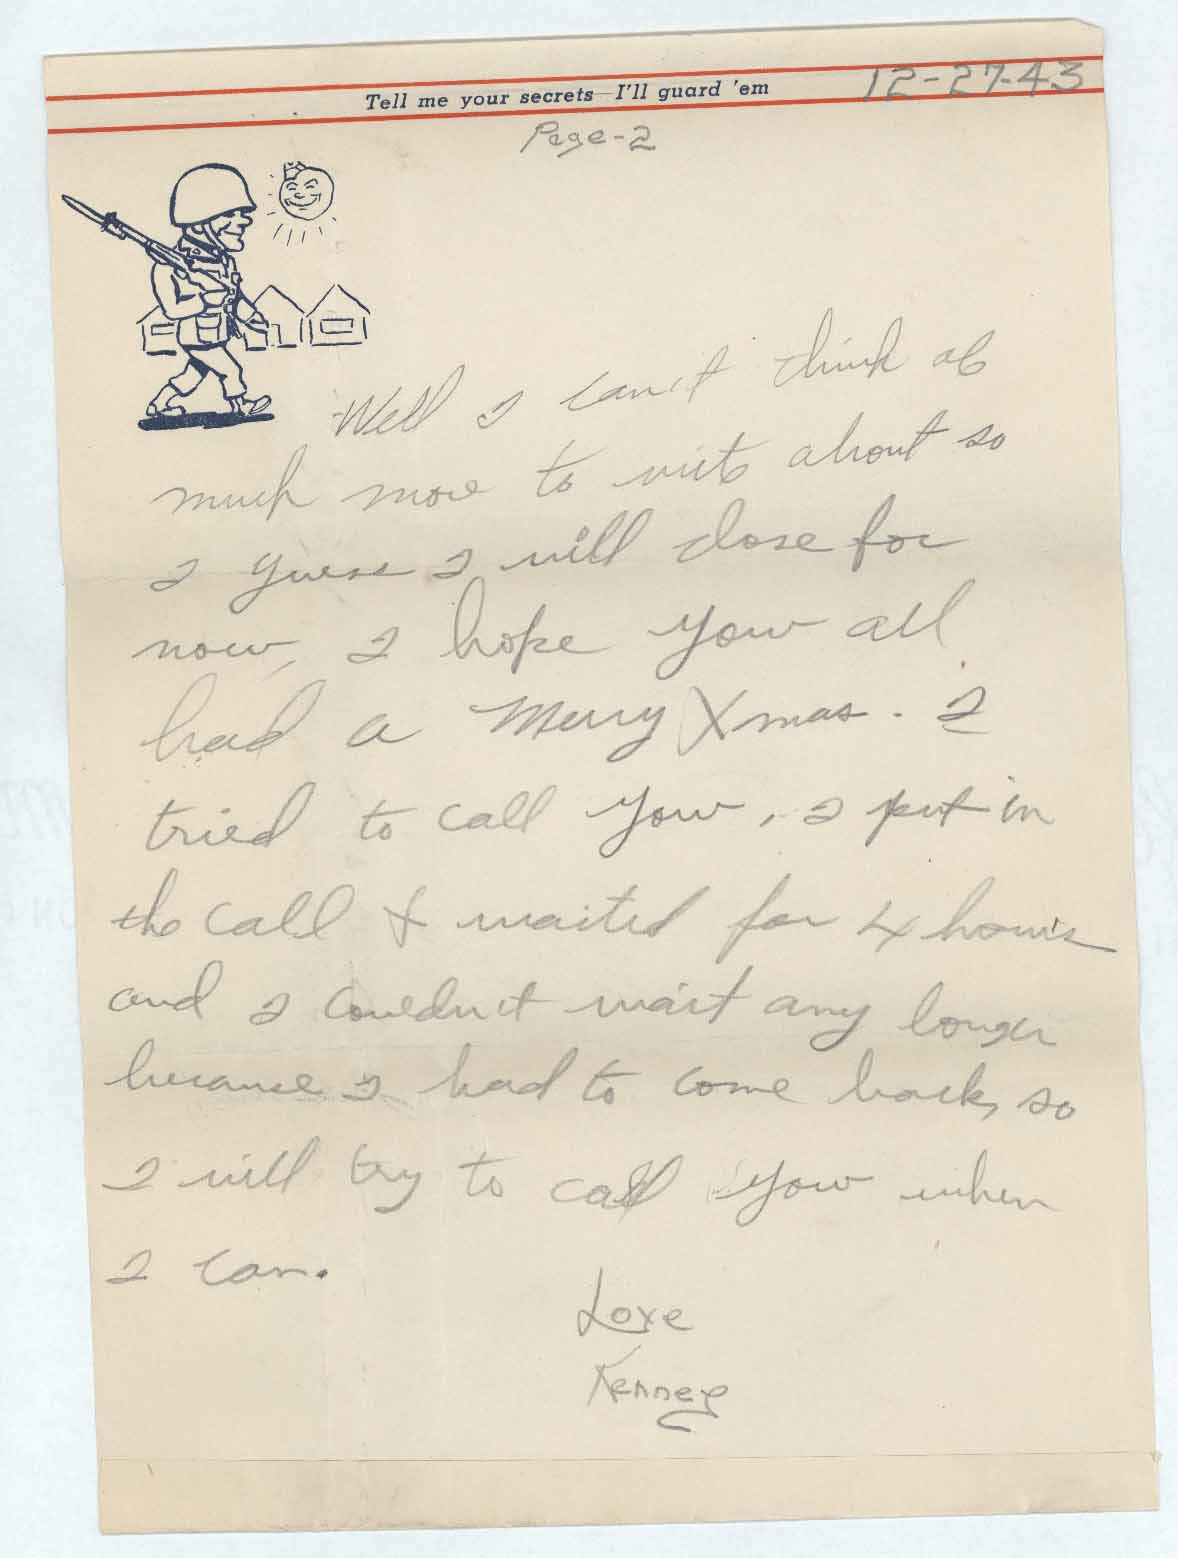 Tell me your secrets—I'll guard 'em
12-27-43
Page-2
Well I can't think of
much more to write about so
I guess I will close for
now, I hope you all
had a Merry Xmas. I
tried to call you, I put in
the call & waited for 4 hours
and I couldn't wait any longer
because I had to come back, so
I will try to call you when
I can.
Love
Kenney